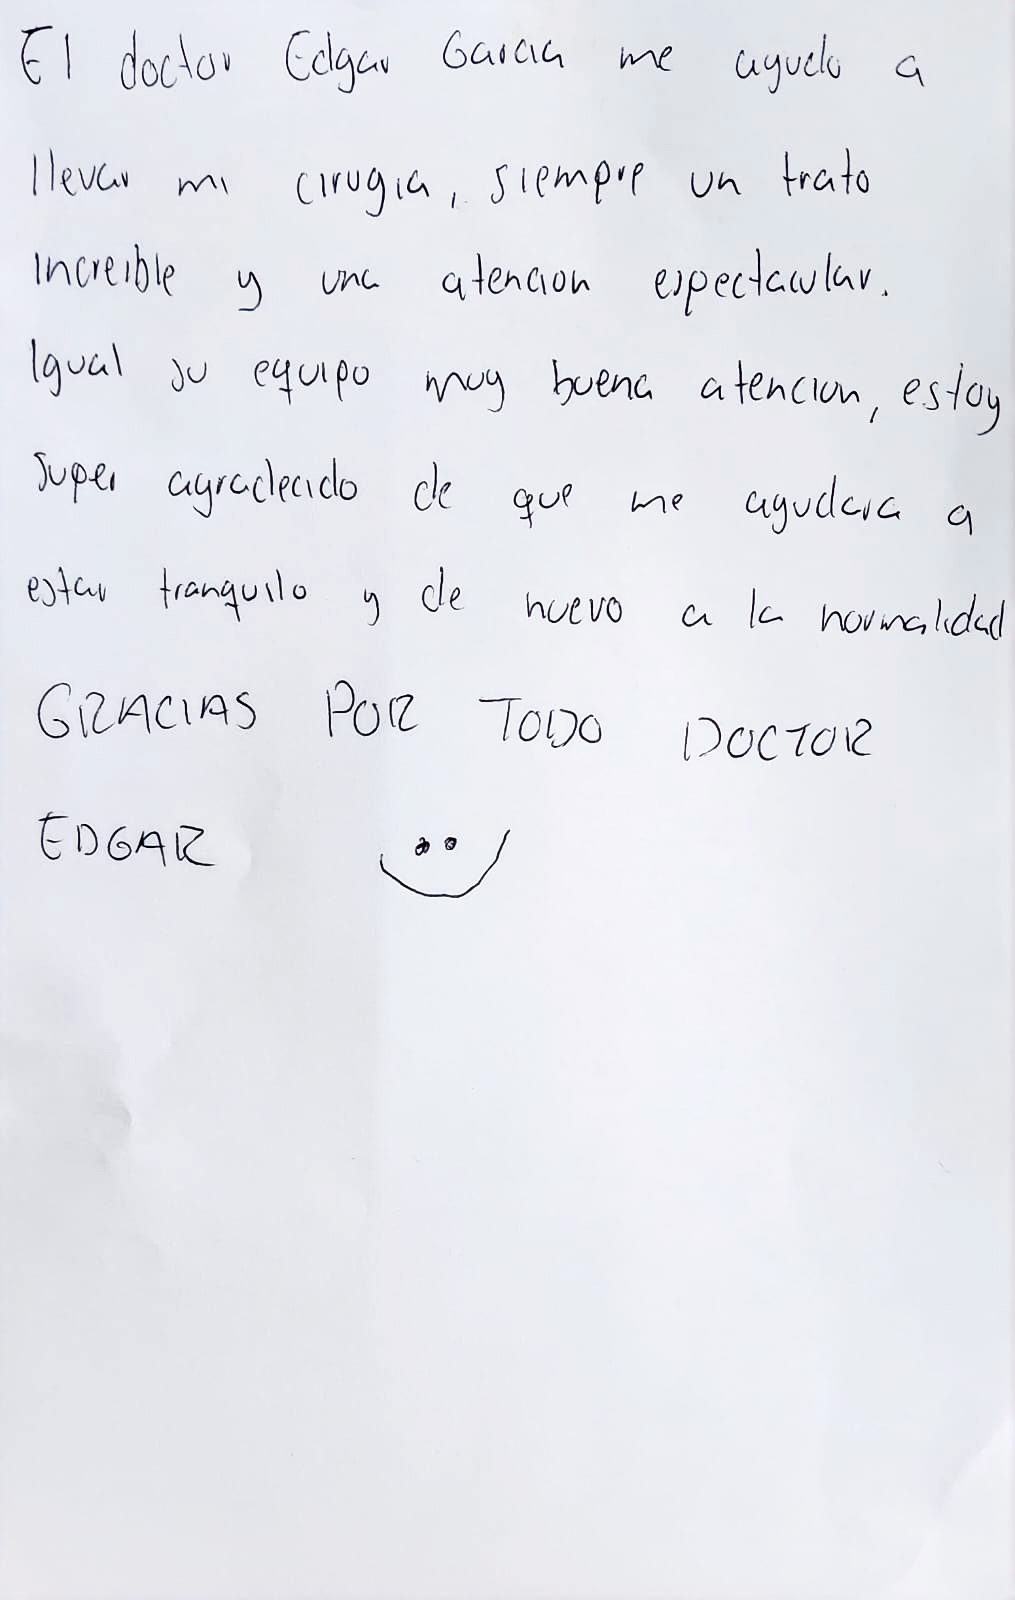 El doctor Edgar Garcia me ayudo a
llevar mi cirugia, siempre un trato
increible y una atencion espectacular.
Igual su equipo muy buena atencion, estoy
super agradecido de que me ayudara a
estar tranquilo y de nuevo a la normalidad
GRACIAS POR TODO DOCTOR
EDGAR